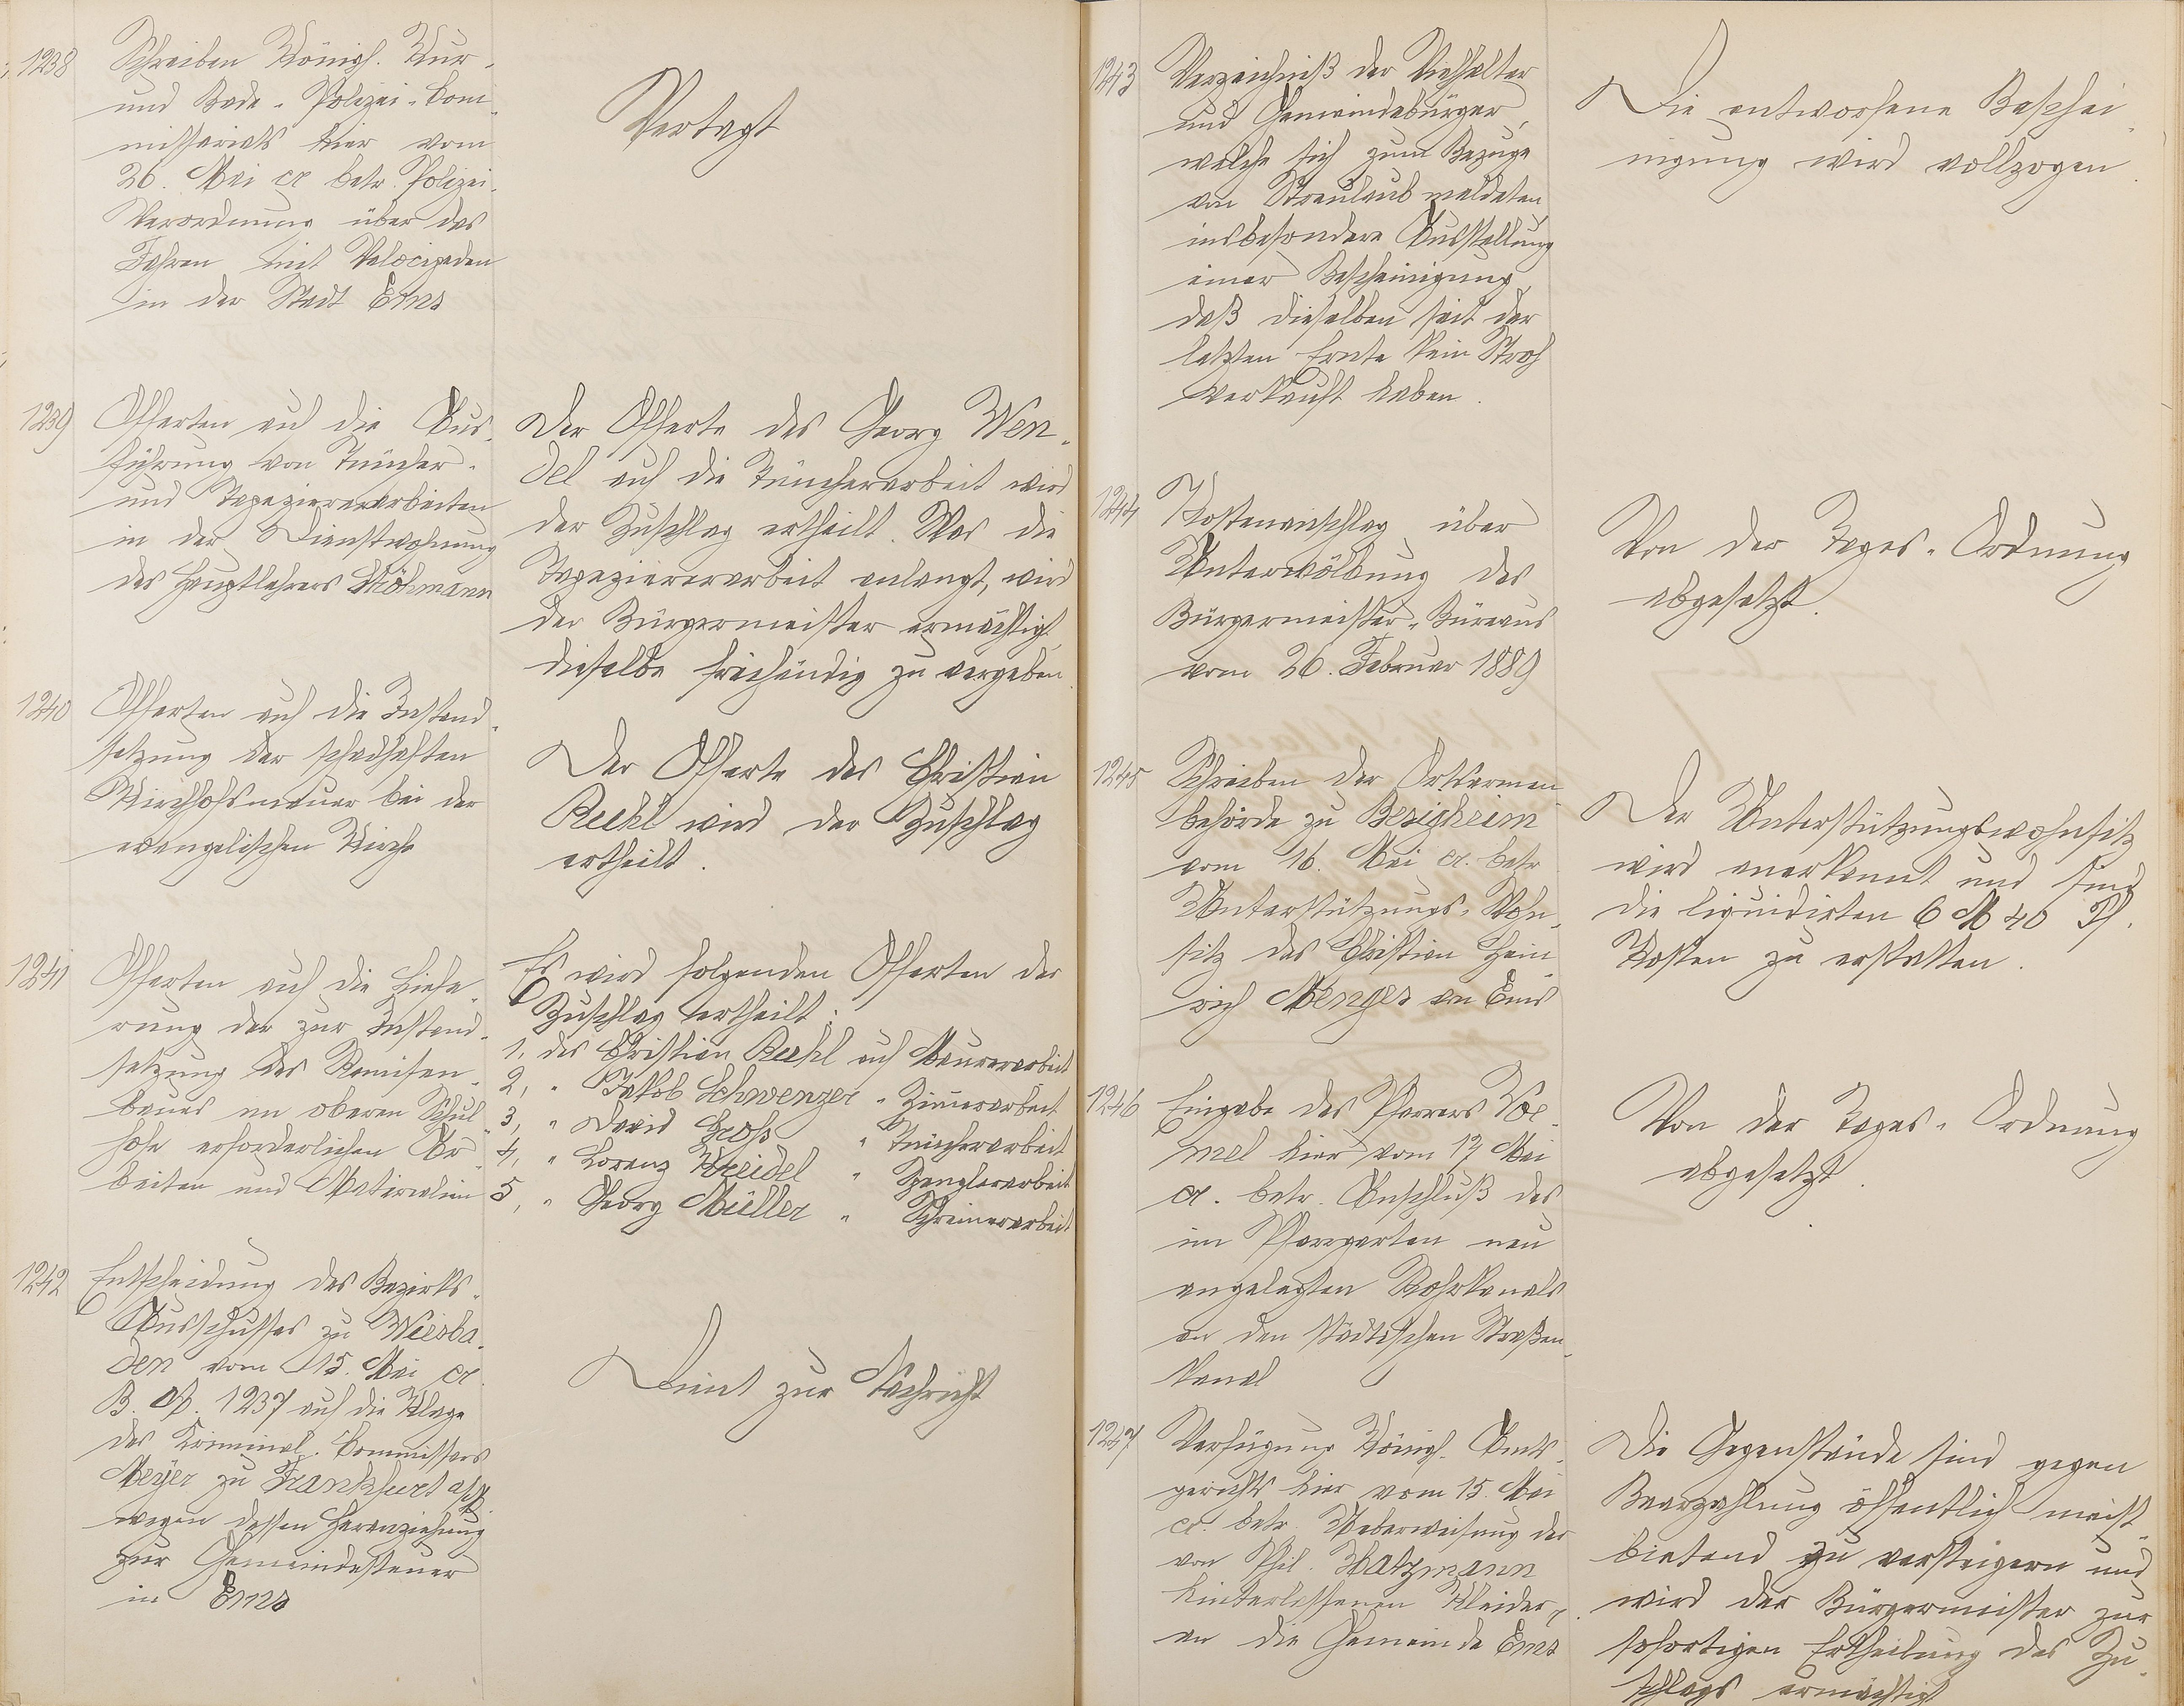 1238
Schreiben Königl. Kur-
und Bade-Polizei-Com-
missariats hier vom
26. Mai cr betr. Polizei-
Verordnung über das
Fahren mit Velocipeden
in der Stadt Ems
Vertagt
1239
Offerten auf die Aus-
führung von Tüncher-
und Tapeziererarbeiten
in der Dienstwohnung
des Hauptlehrers
Der Offerte des Georg Wen-
del auf die Tüncherarbeit wird
der Zuschlag ertheilt. Was die
Tapeziererarbeit anlangt, wird
der Bürgermeister ermächtigt
dieselbe freihändig zu vergeben
1240
Offerten auf die Instand-
setzung der schadhaften
Kirchhofsmauer bei der
evangelischen Kirche
Der Offerte des Christian
wird der Zuschlag
ertheilt.
1241
Offerten auf die Liefe-
rung der zur Instand-
setzung des Remisen-
baues im oberen Schul-
hofe erforderlichen Ar-
beiten und Materialien
Es wird folgenden Offerten der
Zuschlag ertheilt:
1, des Christian auf Maurerarbeit
2, " Jakob Schwenzer " Zimerarbeit
3, " David Groß " Tüncherarbeit
4, " Lorenz " Spenglerarbeit
5, " Georg Müller " Schreinerarbeit
1242
Entscheidung des Bezirks-
Ausschusses zu Wiesba-
den vom 15. Mai cr
B. A. 1237 auf die Klage
des Kriminal-Commissars
Meyer zu Frankfurt a/M
wegen dessen Heranziehung
zur Gemeindesteuer
in Ems
Dient zur Nachricht
1243
Verzeichniß der Viehhalter
und Gemeindebürger,
welche sich zum Bezuge
von Streulaub meldeten,
insbesondere Ausstellung
einer Bescheinigung,
daß dieselben seit der
letzten Ernte kein Stroh
verkauft haben.
Die entworfene Beschei-
nigung wird vollzogen.
1244
Kostenanschlag über
Unterwölbung des
Bürgermeister-Büreaus
vom 26. Februar 1889
Von der Tages-Ordnung
abgesetzt.
1245
Schreiben der Ortsarmen-
behörde zu Besigheim
vom 16. Mai cr. betr
Unterstützungs-Wohn-
sitz des Christian Hein-
rich Menges von Ems
Der Unterstützungswohnsitz
wird anerkannt und sind
die liquidirten 6 M 40 Pf.
Kosten zu erstatten.
1246
Eingabe des Pfarrers Voe-
mel hier vom 17 Mai
cr. betr. Anschluß des
im Pfarrgarten neu
angelegten Rohrkanals
an den städtischen Straßen-
kanal
Von der Tages-Ordnung
abgesetzt.
1247
Verfügung Königl. Amts-
gerichts hier vom 15. Mai
cr. betr. Ueberweisung der
von Phil. Hatzmann
hinterlassenen Kleider
an die Gemeinde Ems
Die Gegenstände sind gegen
Baarzahlung öffentlich meist-
bietend zu versteigern und
wird der Bürgermeister zur
sofortigen Ertheilung des Zu-
schlags ermächtigt